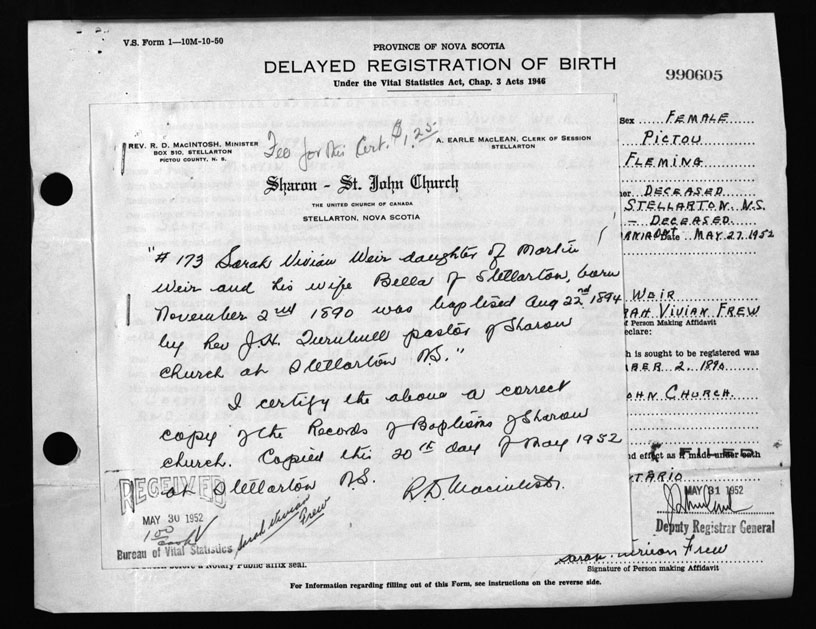 V.S. Form 1—10M-10-50
PROVINCE OF NOVA SCOTIA
DELAYED REGISTRATION OF BIRTH
Under the Vital Statistics Act, Chap. 3 Acts 1946
990605
REV. R. D. MACINTOSH, MINISTER
BOX 510, STELLARTON
PICTOU COUNTY, N. S.
Fee for this Cert. $1.25
A. EARLE MACLEAN, CLERK OF SESSION
STELLARTON
Sharon - St. John Church
THE UNITED CHURCH OF CANADA
STELLARTON, NOVA SCOTIA
"# 173 Sarah Vivian Weir daughter of Martin
Weir and his wife Bella of Stellarton, born
November 2nd 1890 was baptised Aug 22nd 1894
by Rev J.H. Turnbull pastor of Sharon
church at Stellarton N.S."
I certify the above a correct
copy of the Records of Baptisms of Sharon
church. Copied this 20th day of May 1952
at Stellarton N.S. R.D. Macintosh.
RECEIVED
MAY 30 1952
1.00
Bureau of Vital Statistics
Sarah Vivian
Frew
Sex FEMALE
PICTOU
FLEMING
DECEASED
STELLARTON, N.S.
- DECEASED
Date MAY 27, 1952
WEIR
RAH VIVIAN FREW
of Person Making Affidavit
eclare:
h is sought to be registered was
BER 2, 1890
OHN CHURCH.
d effect as if made under oath
FILED
TARIO
MAY 31 1952
Deputy Registrar General
Sarah Vivian Frew
Signature of Person making Affidavit
before a Notary Public affix seal.
For Information regarding filling out of this Form, see instructions on the reverse side.